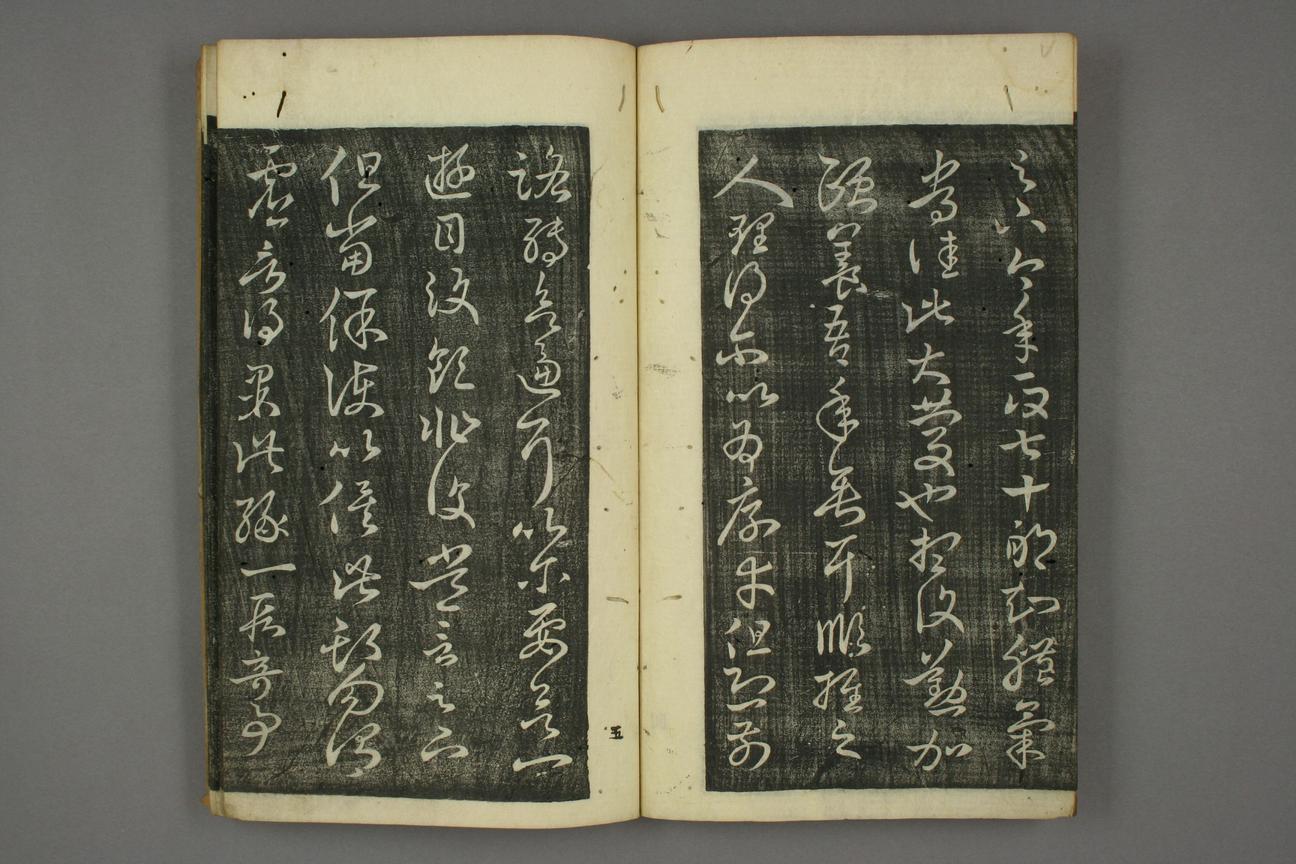 足下今年政七十耶知體氣
常佳此大慶也想復懃加
頤養吾年垂耳順推之
人理得爾以為厚幸但恐前
路轉欲逼耳以爾要欲一
遊目汶領非復常言足下
但當保護以俟此期勿謂
虛言得果此緣一段奇事
五